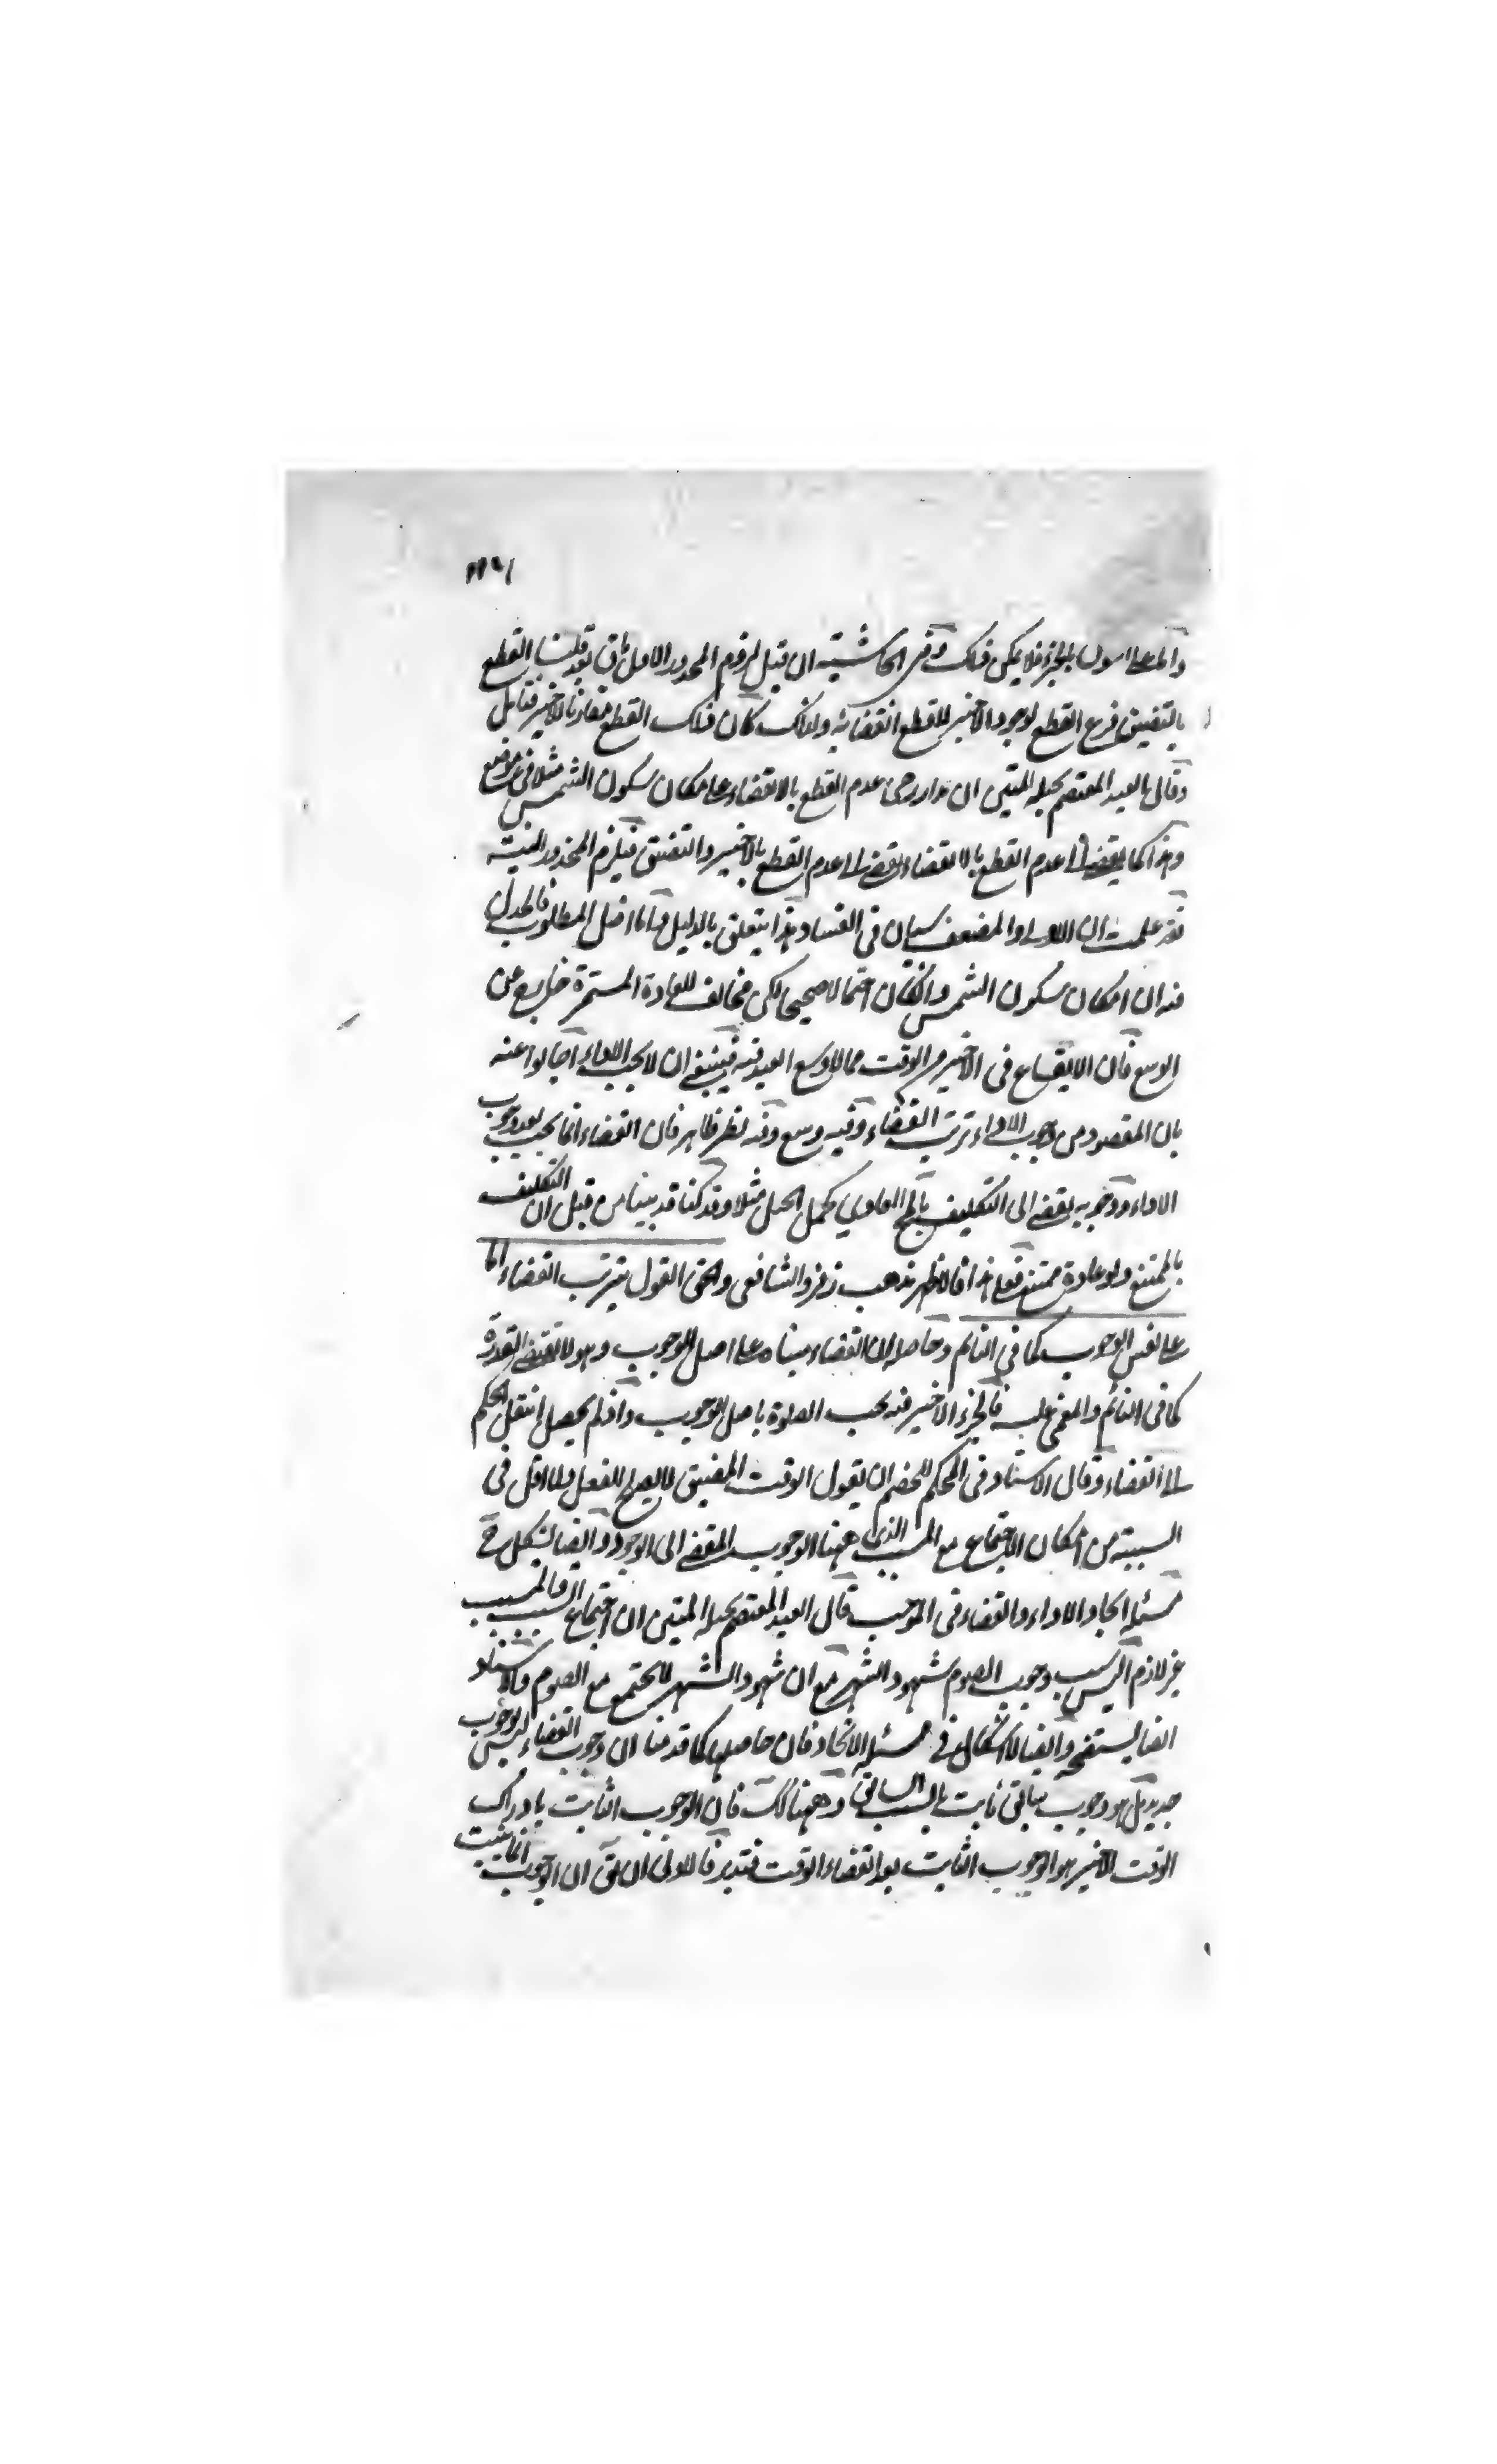 فلا يمكن ذلك وفى الحاشية ان قيل لزوم المحذور الاول باق بعد قلنا القطع
بالتضيق فرع القطع لوجود الاخير للقطع انقضائه ولذلك كان ذلك القطع مقارنا للاخير فتامل
وقال العبد المعتصم بحبله المتين ان مدار عدم القطع بالانقضاء على امكان سكون الشمس مثلا فى موضع
وهذا كما يقضى الى عدم القطع بالانقضاء يقضى الى عدم القطع بالاخير والتضيق فيلزم المحذور البتة
فقد علمت ان الاولى والمضعف سيان فى الفساد هذا يتعلق بالدليل واما اصل المطلوب
فيه ان امكان سكون الشمس وان كان احتمالا صحيحا لكن مخالف للعادة المستمرة خارج عن
الوسع فان الايقاع فى الاخير من الوقت مما لا وسع العبد فيه فينبغى ان لا يجب الاداء اجابوا عنه
بان المقصود من وجوب الاداء ترتب القضاء وفيه وسع وفيه نظر ظاهر فان القضاء انما يجب بعد وجوب
الاداء ووجوبه يفضى الى التكليف بالمحال العادى كحمل الجبل مثلا وقد كنا قد بينا من قبل ان التكليف
بالممتنع ولو عادة ممتنع فعلى هذا فالاظهر مذهب زفر والشافعى والحق القول بترتب القضاء انما
على نفس الوجوب كما فى النائم وحاصله ان القضاء مبناه على اصل الوجوب وهو لا يقتضى القدرة
كما فى النائم والمغمى عليه فالجزء الاخير فيه يجب الصلوة باصل الوجوب واذ لم يحصل انتقل الحكم
الى القضاء وقال الاستاد فى المحكم للخصم ان يقول الوقت المضيق لا يصلح للفعل ولا اقل فى
السببية من امكان الاجتماع مع المسبب الذى ههنا الوجوب المفضى الى الوجود وايضا يشكل ح
مسئلة اتحاد الاداء والقضاء فى الموجب قال العبد المعتصم بحبله المتين ان اجتماع السبب والمسبب
غير لازم اليس سبب وجوب الصوم شهود الشهر مع ان شهود الشهر لا يجتمع مع الصوم والاستاد
ايضا وايضا لا اشكال فى مسئلة الاتحاد فان حاصلها كما قدمنا ان وجوب القضاء ليس بوجوب
جديد بل هو وجوب سابق ثابت بالسبب السابق وههنا كذلك فان الوجوب الثابت بادراك
الوقت الاخير هو الوجوب الثابت بعد انقضاء الوقت فتدبر فالاولى ان يق ان الوجوب انما يثبت